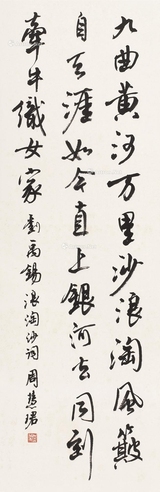 九曲黄河万里沙浪淘风簸
自天涯如今直上银河去同到
牵牛织女家 刘禹锡浪淘沙词 周慧珺